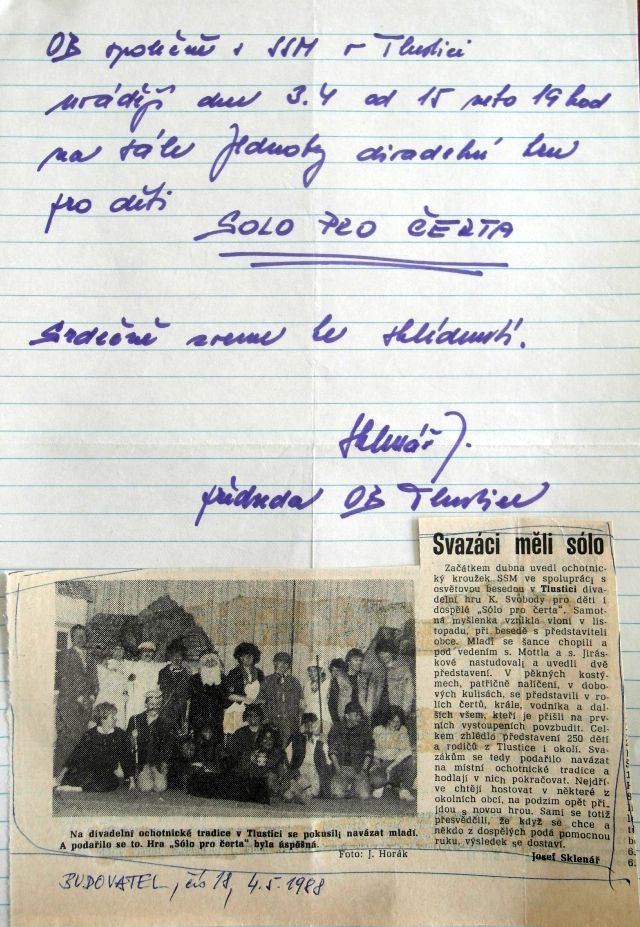 OB společně s SSM v Tlustici
uvádějí dne 3.4 od 15 nebo 19 hod
na sále Jednoty divadelní hru
pro děti
SOLO PRO ČERTA
Srdečně zveme ke shlédnutí.
Sklenář J.
předseda OB Tlustice
Svazáci měli sólo
Začátkem dubna uvedl ochotnic-
ký kroužek SSM ve spolupráci s
osvětovou besedou v Tlustici diva-
delní hru K. Svobody pro děti i
dospělé „Sólo pro čerta“. Samot-
ná myšlenka vznikla vloni v lis-
topadu, při besedě s představiteli
obce. Mladí se šance chopili a
pod vedením s. Mottla a s. Jirás-
kové nastudovali a uvedli dvě
představení. V pěkných kostý-
mech, patřičně nalíčení, v dobo-
vých kulisách, se představili v ro-
lích čertů, krále, vodníka a dal-
ších všem, kteří je přišli na prv-
ních vystoupeních povzbudit. Cel-
kem zhlédlo představení 250 dětí
a rodičů z Tlustice i okolí. Sva-
zákům se tedy podařilo navázat
na místní ochotnické tradice a
hodlají v nich pokračovat. Nejdří-
ve chtějí hostovat v některé z
okolních obcí, na podzim opět při-
jdou s novou hrou. Sami se totiž
přesvědčili, že když se chce a
někdo z dospělých podá pomocnou
ruku, výsledek se dostaví.
Josef Sklenář
Na divadelní ochotnické tradice v Tlustici se pokusili navázat mladí.
A podařilo se to. Hra „Sólo pro čerta“ byla úspěšná.
Foto: J. Horák
BUDOVATEL, čís 18, 4.5.1988